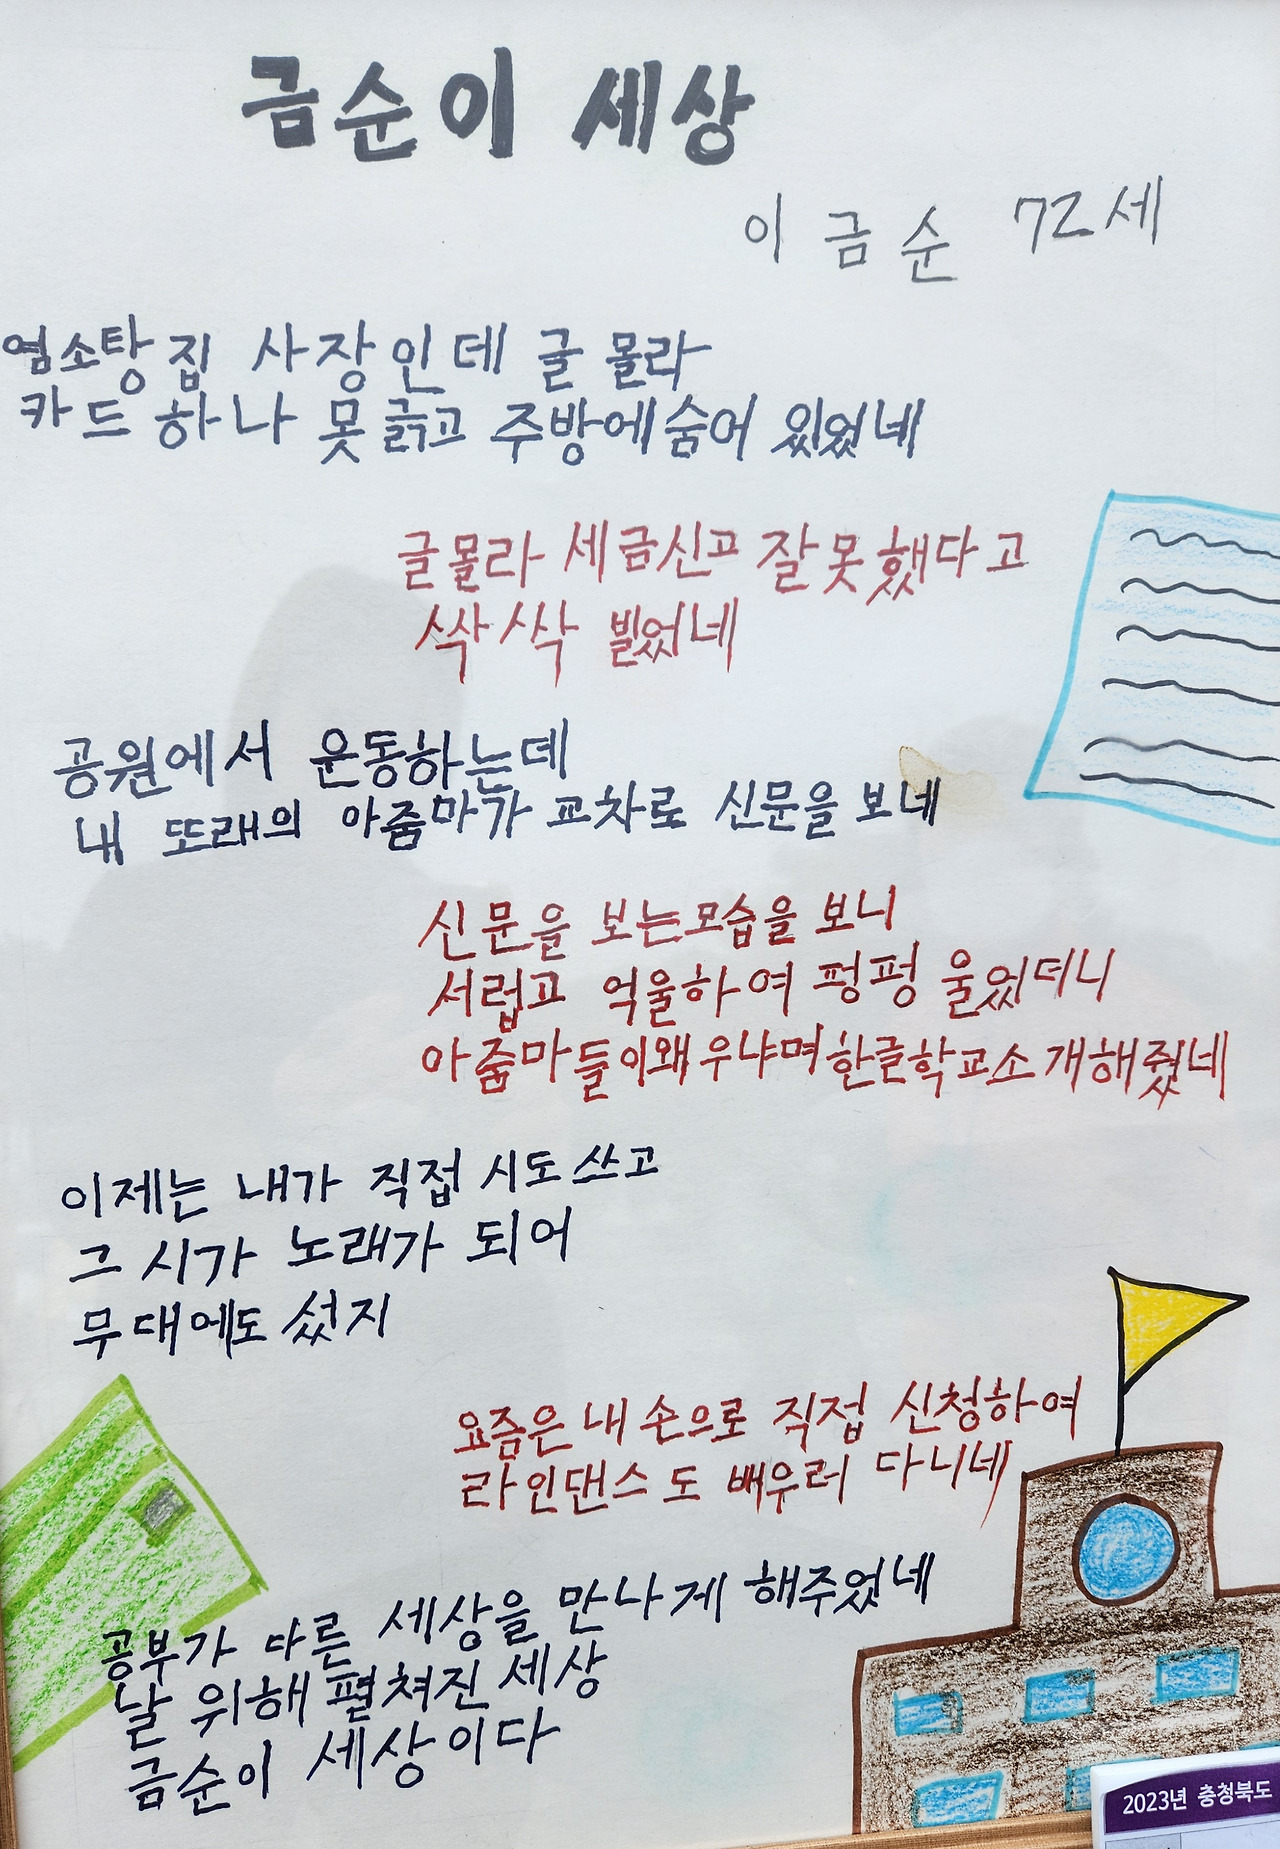 금순이 세상
이금순 72세
염소탕집 사장인데 글 몰라
카드 하나 못 긁고 주방에 숨어 있었네
글몰라 세금신고 잘못했다고
싹싹 빌었네
공원에서 운동하는데
내 또래의 아줌마가 교차로 신문을 보네
신문을 보는모습을 보니
서럽고 억울하여 펑펑 울었더니
아줌마들이왜 우냐며 한글학교소개해줬네
이제는 내가 직접 시도 쓰고
그 시가 노래가 되어
무대에도 섰지
요즘은 내 손으로 직접 신청하여
라인댄스도 배우러 다니네
공부가 다른 세상을 만나게 해주었네
날 위해 펼쳐진 세상
금순이 세상이다
2023년 충청북도